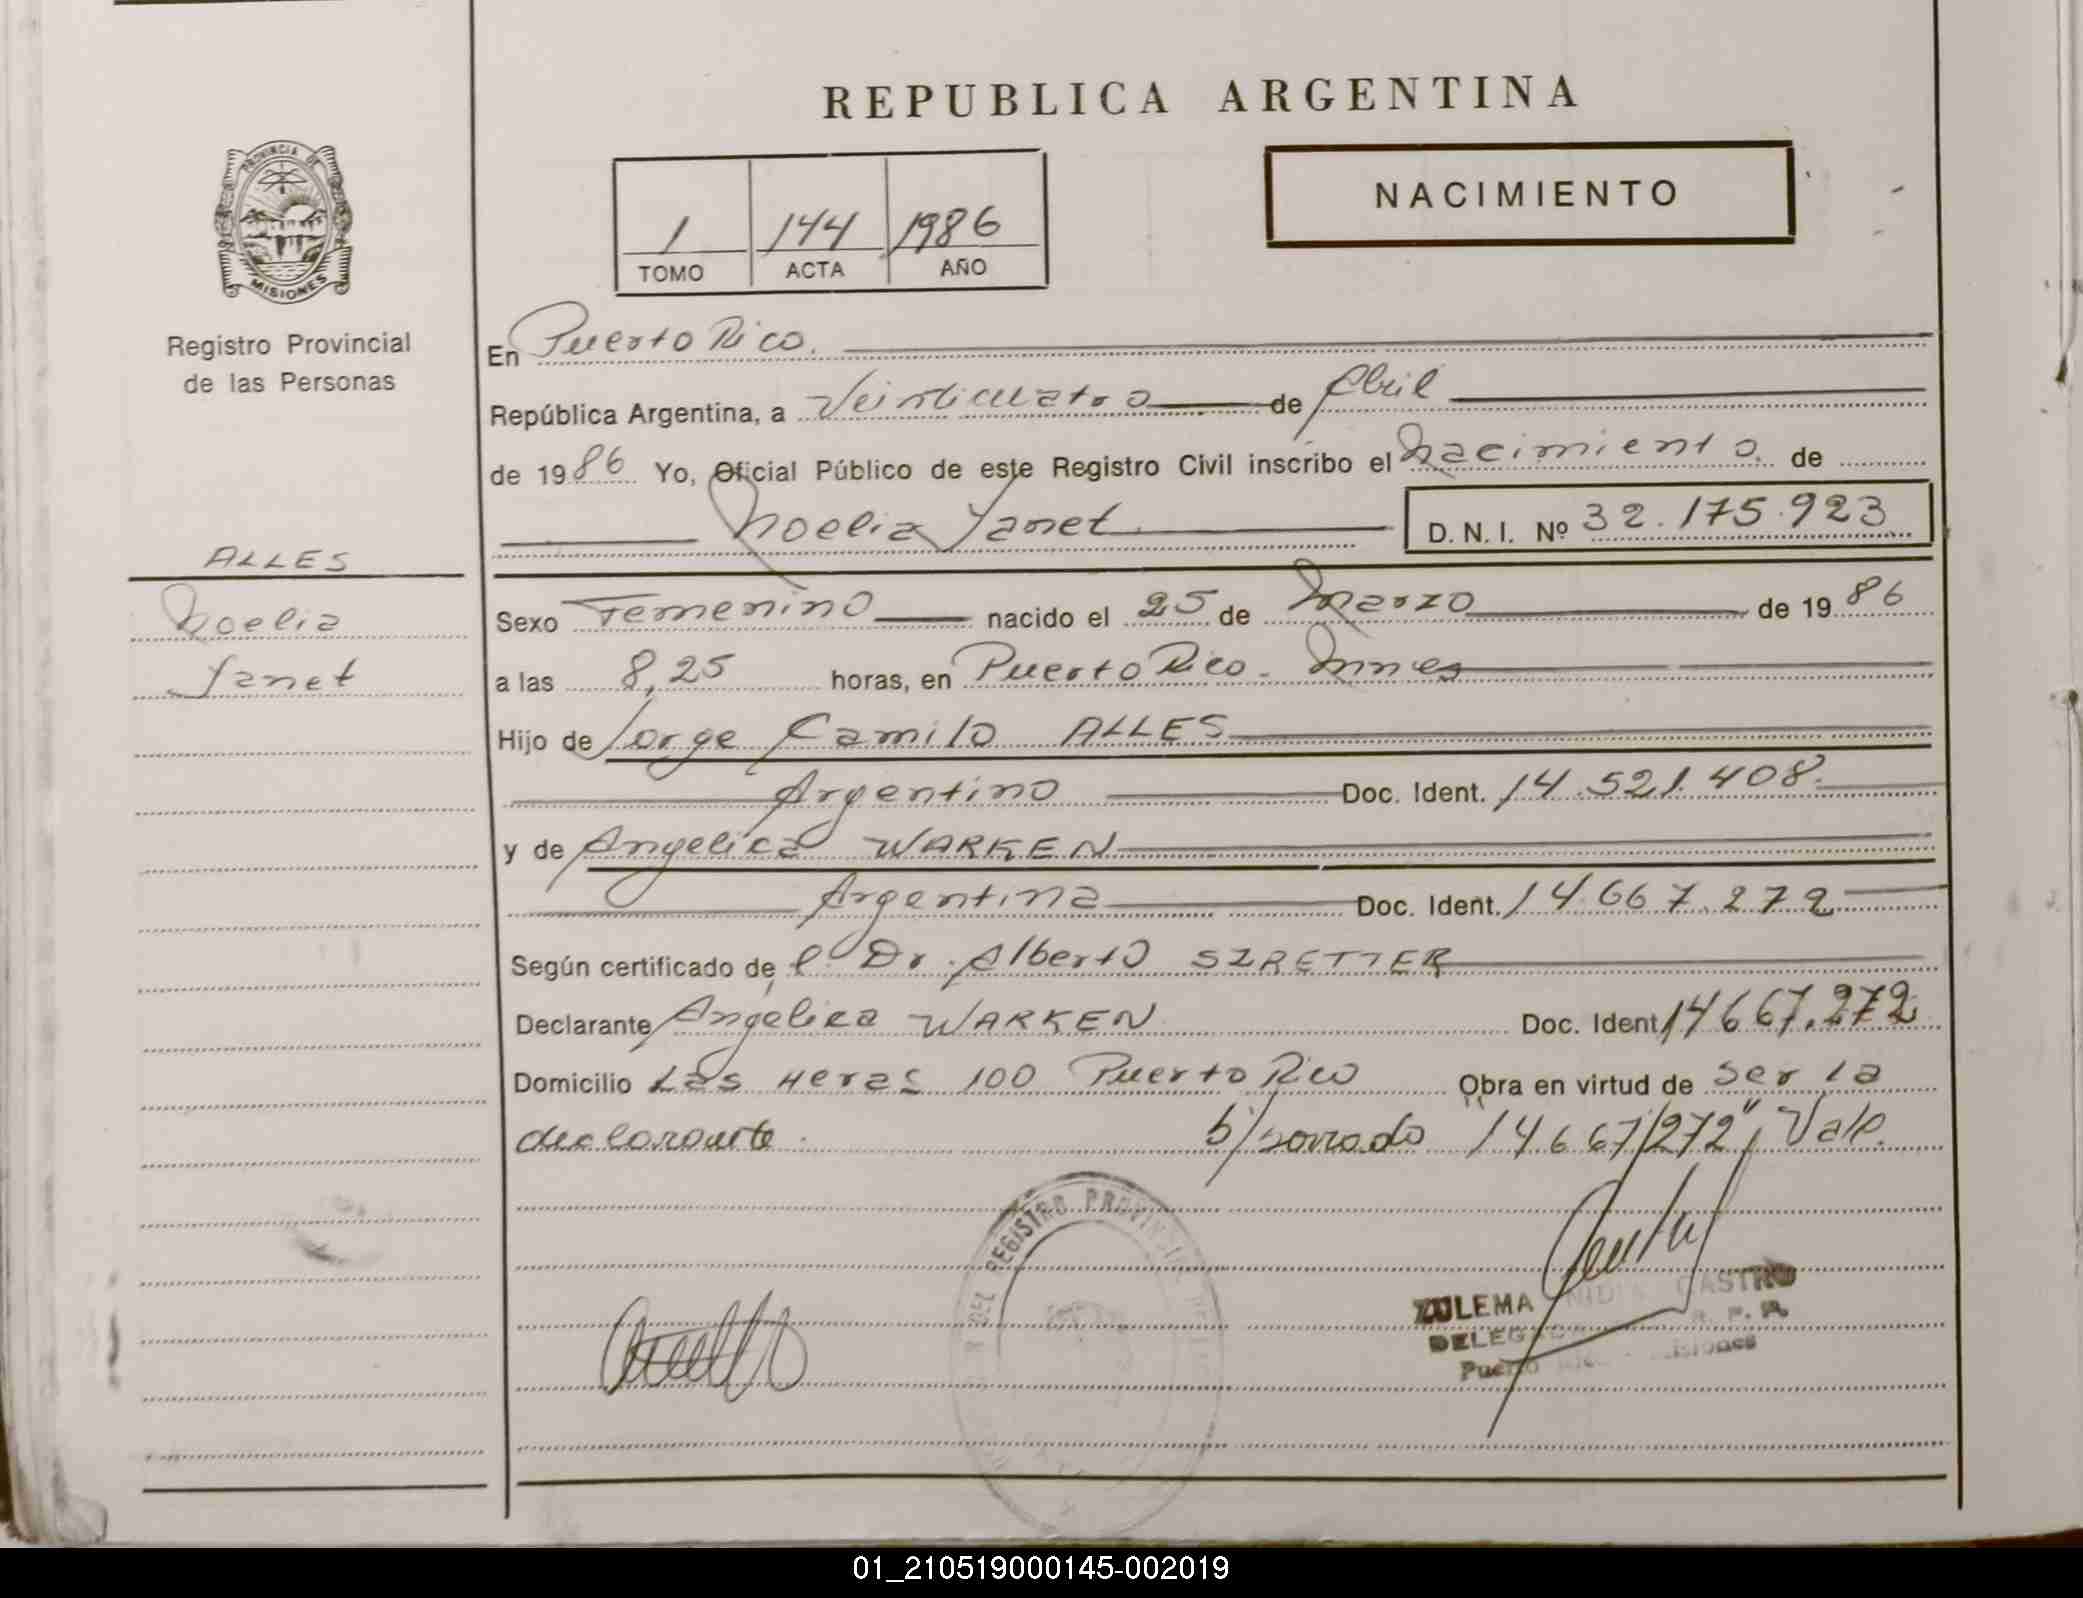 REPUBLICA ARGENTINA
NACIMIENTO
1 144 1986
TOMO ACTA AÑO
PROVINCIA DE
MISIONES
Registro Provincial
de las Personas
ALLES
Noelia
Yanet
En Puerto Rico.
República Argentina, a Veinticuatro de Abril
de 1986 Yo, Oficial Público de este Registro Civil inscribo el Nacimiento de
Noelia Yanet D. N. I. Nº 32.175.923
Sexo Femenino nacido el 25 de Marzo de 1986
a las 8,25 horas, en Puerto Rico - Mnes
Hijo de Jorge Camilo ALLES
Argentino Doc. Ident. 14.521.408.
y de Angelica WARKEN
Argentina Doc. Ident. 14.667.272
Según certificado de l Dr. Alberto SZRETTER
Declarante Angélica WARKEN Doc. Ident 14667.272
Domicilio Las Heras 100 Puerto Rico Obra en virtud de ser la
declarante. s/borrado "14667/272", Vale.
REGISTRO PROVINCIAL DE LAS
ZULEMA NIDIA CASTRO
DELEGADA R. P. P.
Puerto Rico - Misiones
01_210519000145-002019